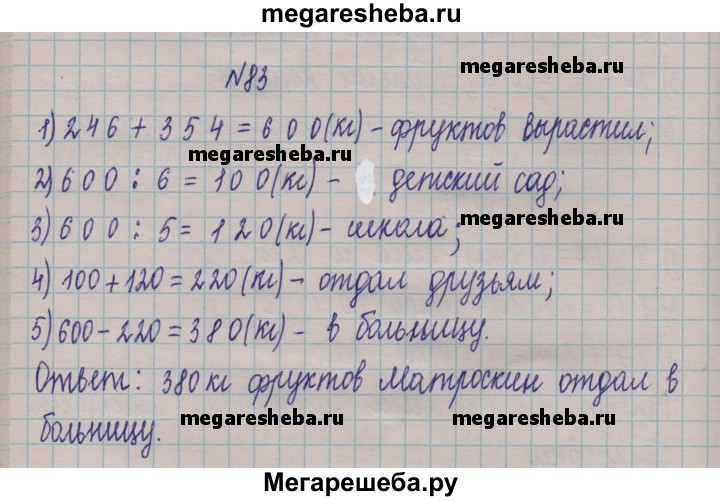 megaresheba.ru
№83
megaresheba.ru
1) 246 + 354 = 600 (кг) - фруктов вырастил;
megaresheba.ru
2) 600 : 6 = 100 (кг) - детский сад;
megaresheba.ru
3) 600 : 5 = 120 (кг) - школа;
4) 100 + 120 = 220 (кг) - отдал друзьям;
5) 600 - 220 = 380 (кг) - в больницу.
megaresheba.ru
Ответ: 380 кг фруктов Матроскин отдал в
megaresheba.ru
megaresheba.ru
больницу.
Мегарешеба.ру